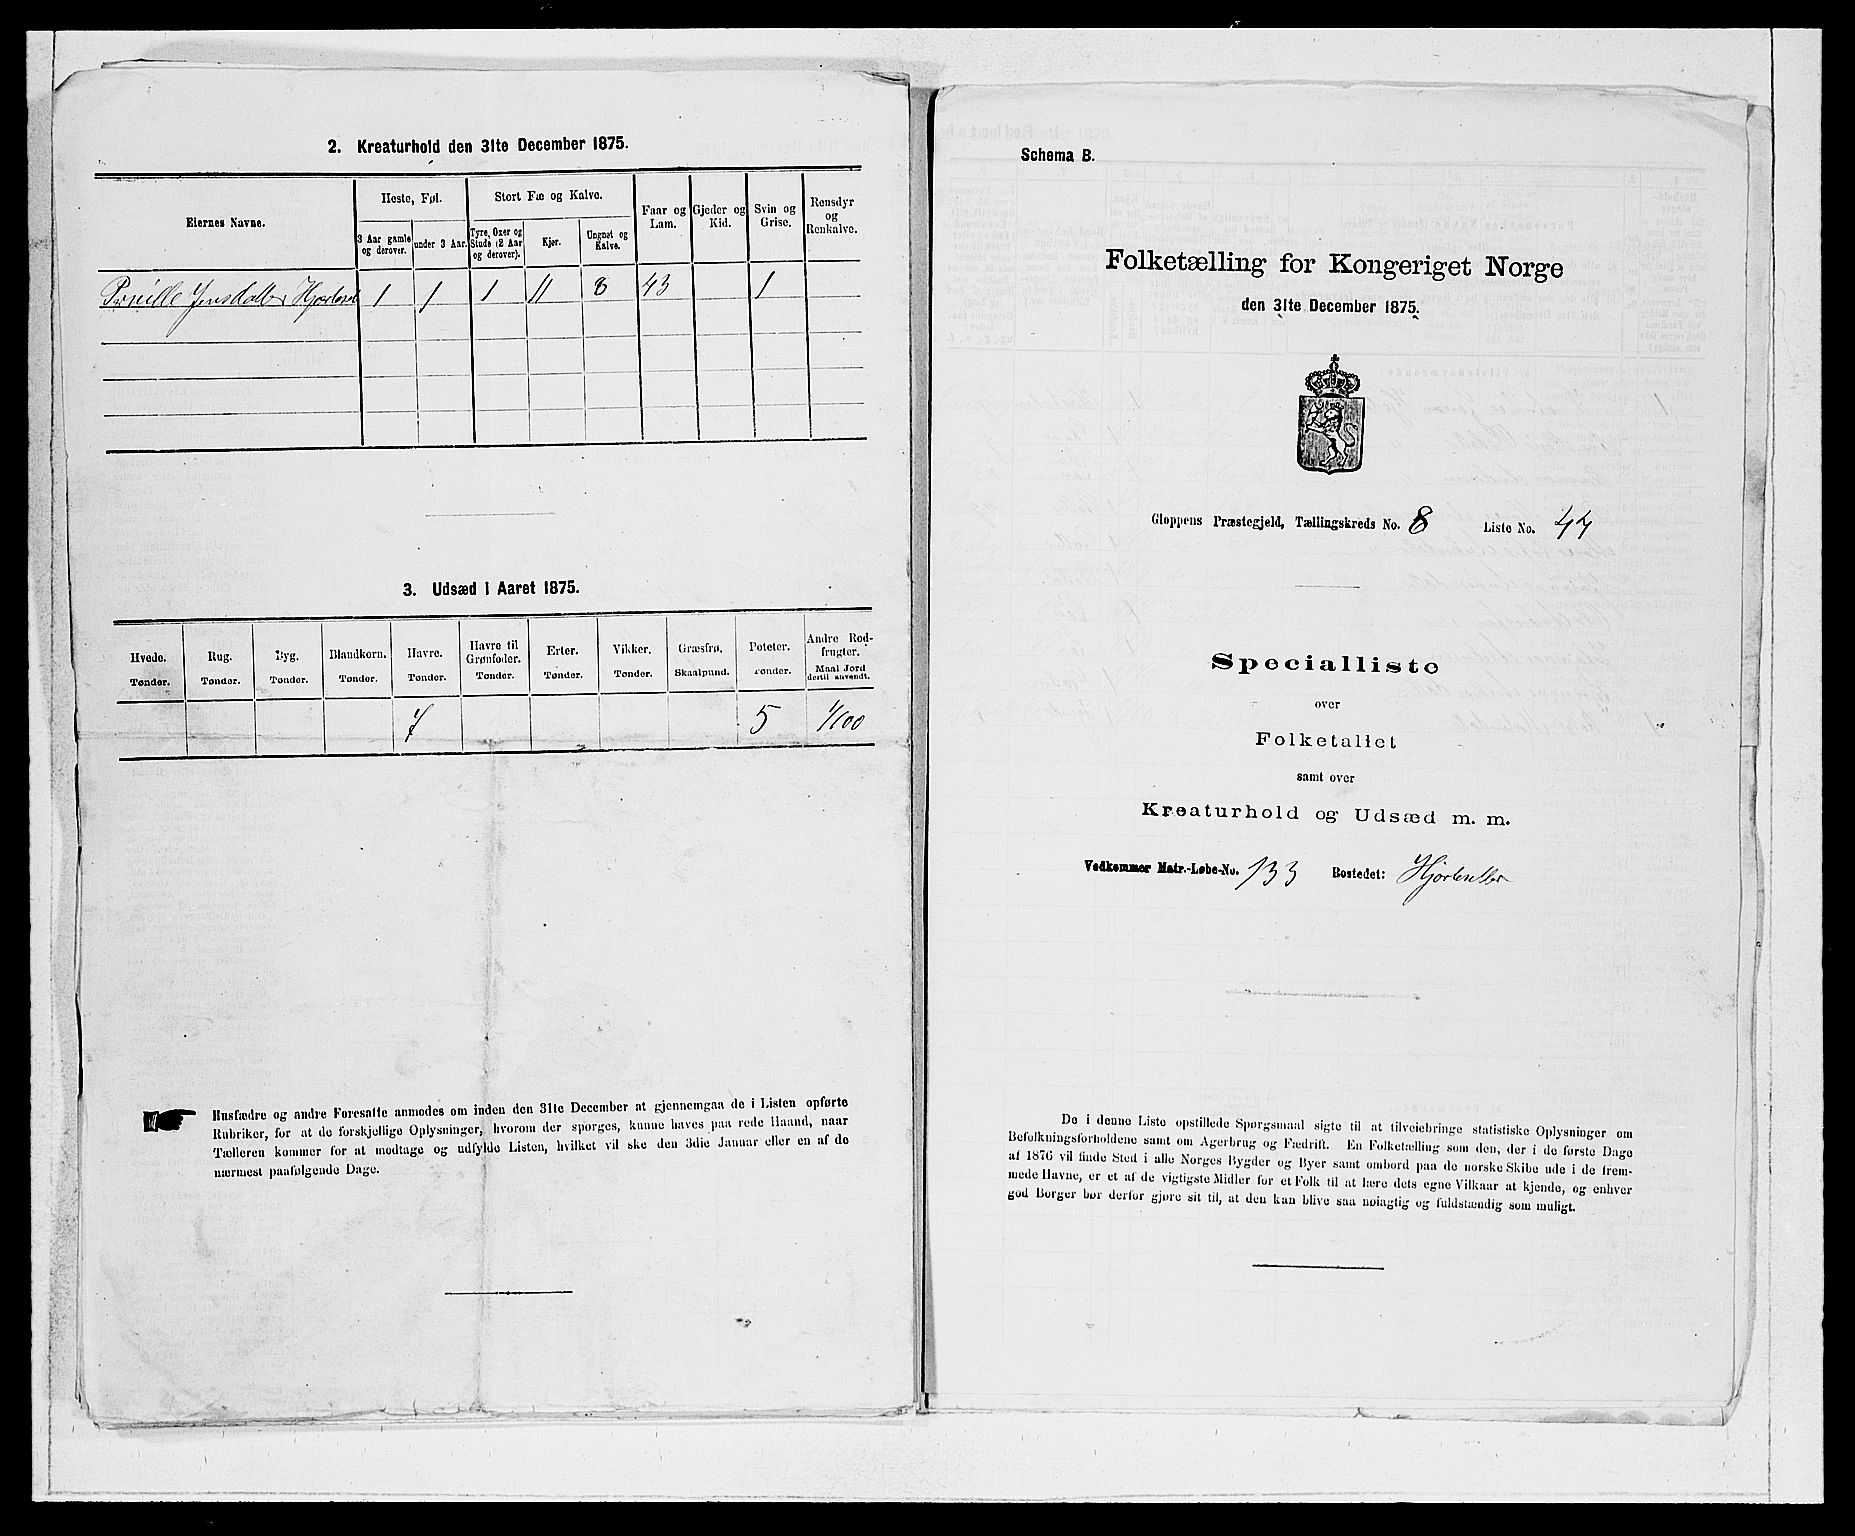 2. Kreaturhold den 31te December 1875.
Eiernes Navne.
Heste, Føl.
3 Aar gamle og derover.
under 3 Aar.
Stort Fæ og Kalve.
Tyre, Oxer og Stude (2 Aar og derover).
Kjør.
Ungnøt og Kalve.
Faar og Lam.
Gjeder og Kid.
Svin og Grise.
Rensdyr og Renkalve.
Jensdatter 1 1 1 11 8 43 1
3. Udsæd i Aaret 1875.
Hvede. Rug. Byg. Blandkorn. Havre. Havre til Grønfoder. Erter. Vikker. Græsfrø. Poteter. Andre Rodfrugter.
Tønder. Tønder. Tønder. Tønder. Tønder. Tønder. Tønder. Tønder. Skaalpund. Tønder. Maal Jord dertil anvendt.
7 5 1/100
Husfædre og andre Foresatte anmodes om inden den 31te December at gjennemgaa de i Listen opførte
Rubriker, for at de forskjellige Oplysninger, hvorom der spørges, kunne haves paa rede Haand, naar
Tælleren kommer for at modtage og udfylde Listen, hvilket vil ske den 3die Januar eller en af de
nærmest paafølgende Dage.
Schema B.
Folketælling for Kongeriget Norge
den 31te December 1875.
Gloppens Præstegjeld, Tællingskreds No. 8 Liste No. 44
Specialliste
over
Folketallet
samt over
Kreaturhold og Udsæd m. m.
Vedkommer Matr.-Løbe-No. 133 Bostedet:
De i denne Liste opstillede Spørgsmaal sigte til at tilveiebringe statistiske Oplysninger om
Befolkningsforholdene samt om Agerbrug og Fædrift. En Folketælling som den, der i de første Dage
af 1876 vil finde Sted i alle Norges Bygder og Byer samt ombord paa de norske Skibe ude i de frem-
mede Havne, er et af de vigtigste Midler for et Folk til at lære dets egne Vilkaar at kjende, og enhver
god Borger bør derfor gjøre sit til, at den kan blive saa nøiagtig og fuldstændig som muligt.